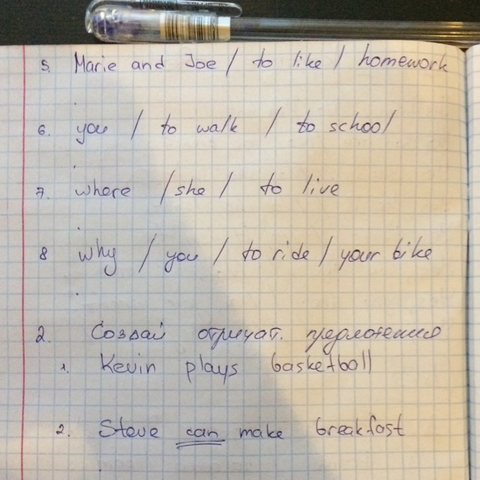 5. Marie and Joe / to like / homework
6. you / to walk / to school
7. where / she / to live
8 why / you / to ride / your bike
2. Создай отрицат. предложения
1. Kevin plays basketball
2. Steve can make breakfast